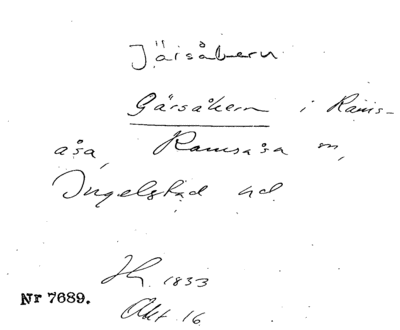 Järsåkern
Gärsåkern i Rams-
åsa, Ramsåsa sn,
Ingelstad hd
Hr. 1833
Nr 7689.
Akt 16